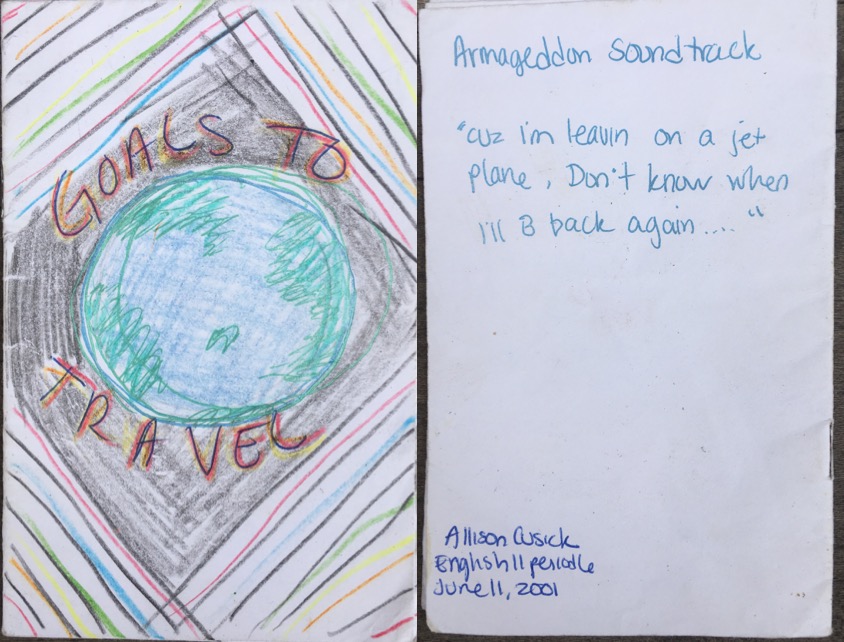 GOALS TO
TRAVEL
Armageddon Soundtrack
"cuz i'm leavin on a jet
plane, Don't know when
i'll B back again.... "
Allison Cusick
English 11 period 6
June 11, 2001